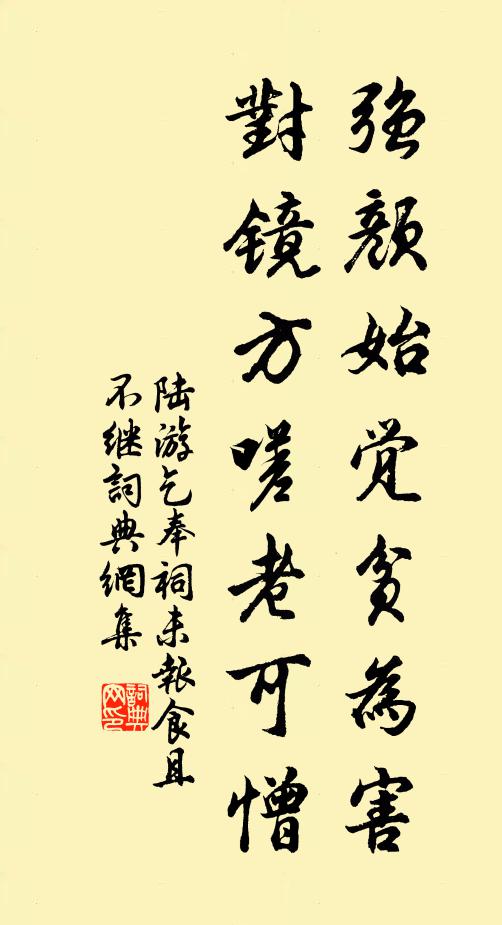 强颜始觉贫為害
對镜方嗟老可憎
陆游乞奉祠未報食且
不继詞典網集
詞典网印